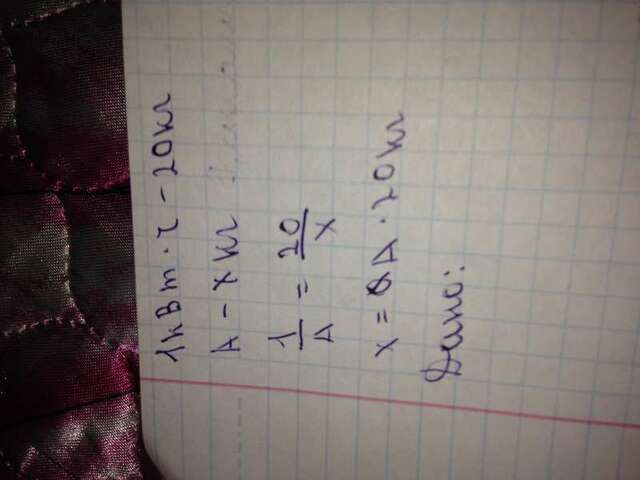 1кВт·ч - 20кг
A - x кг
1/A = 20/x
x = A · 20кг
Дано: